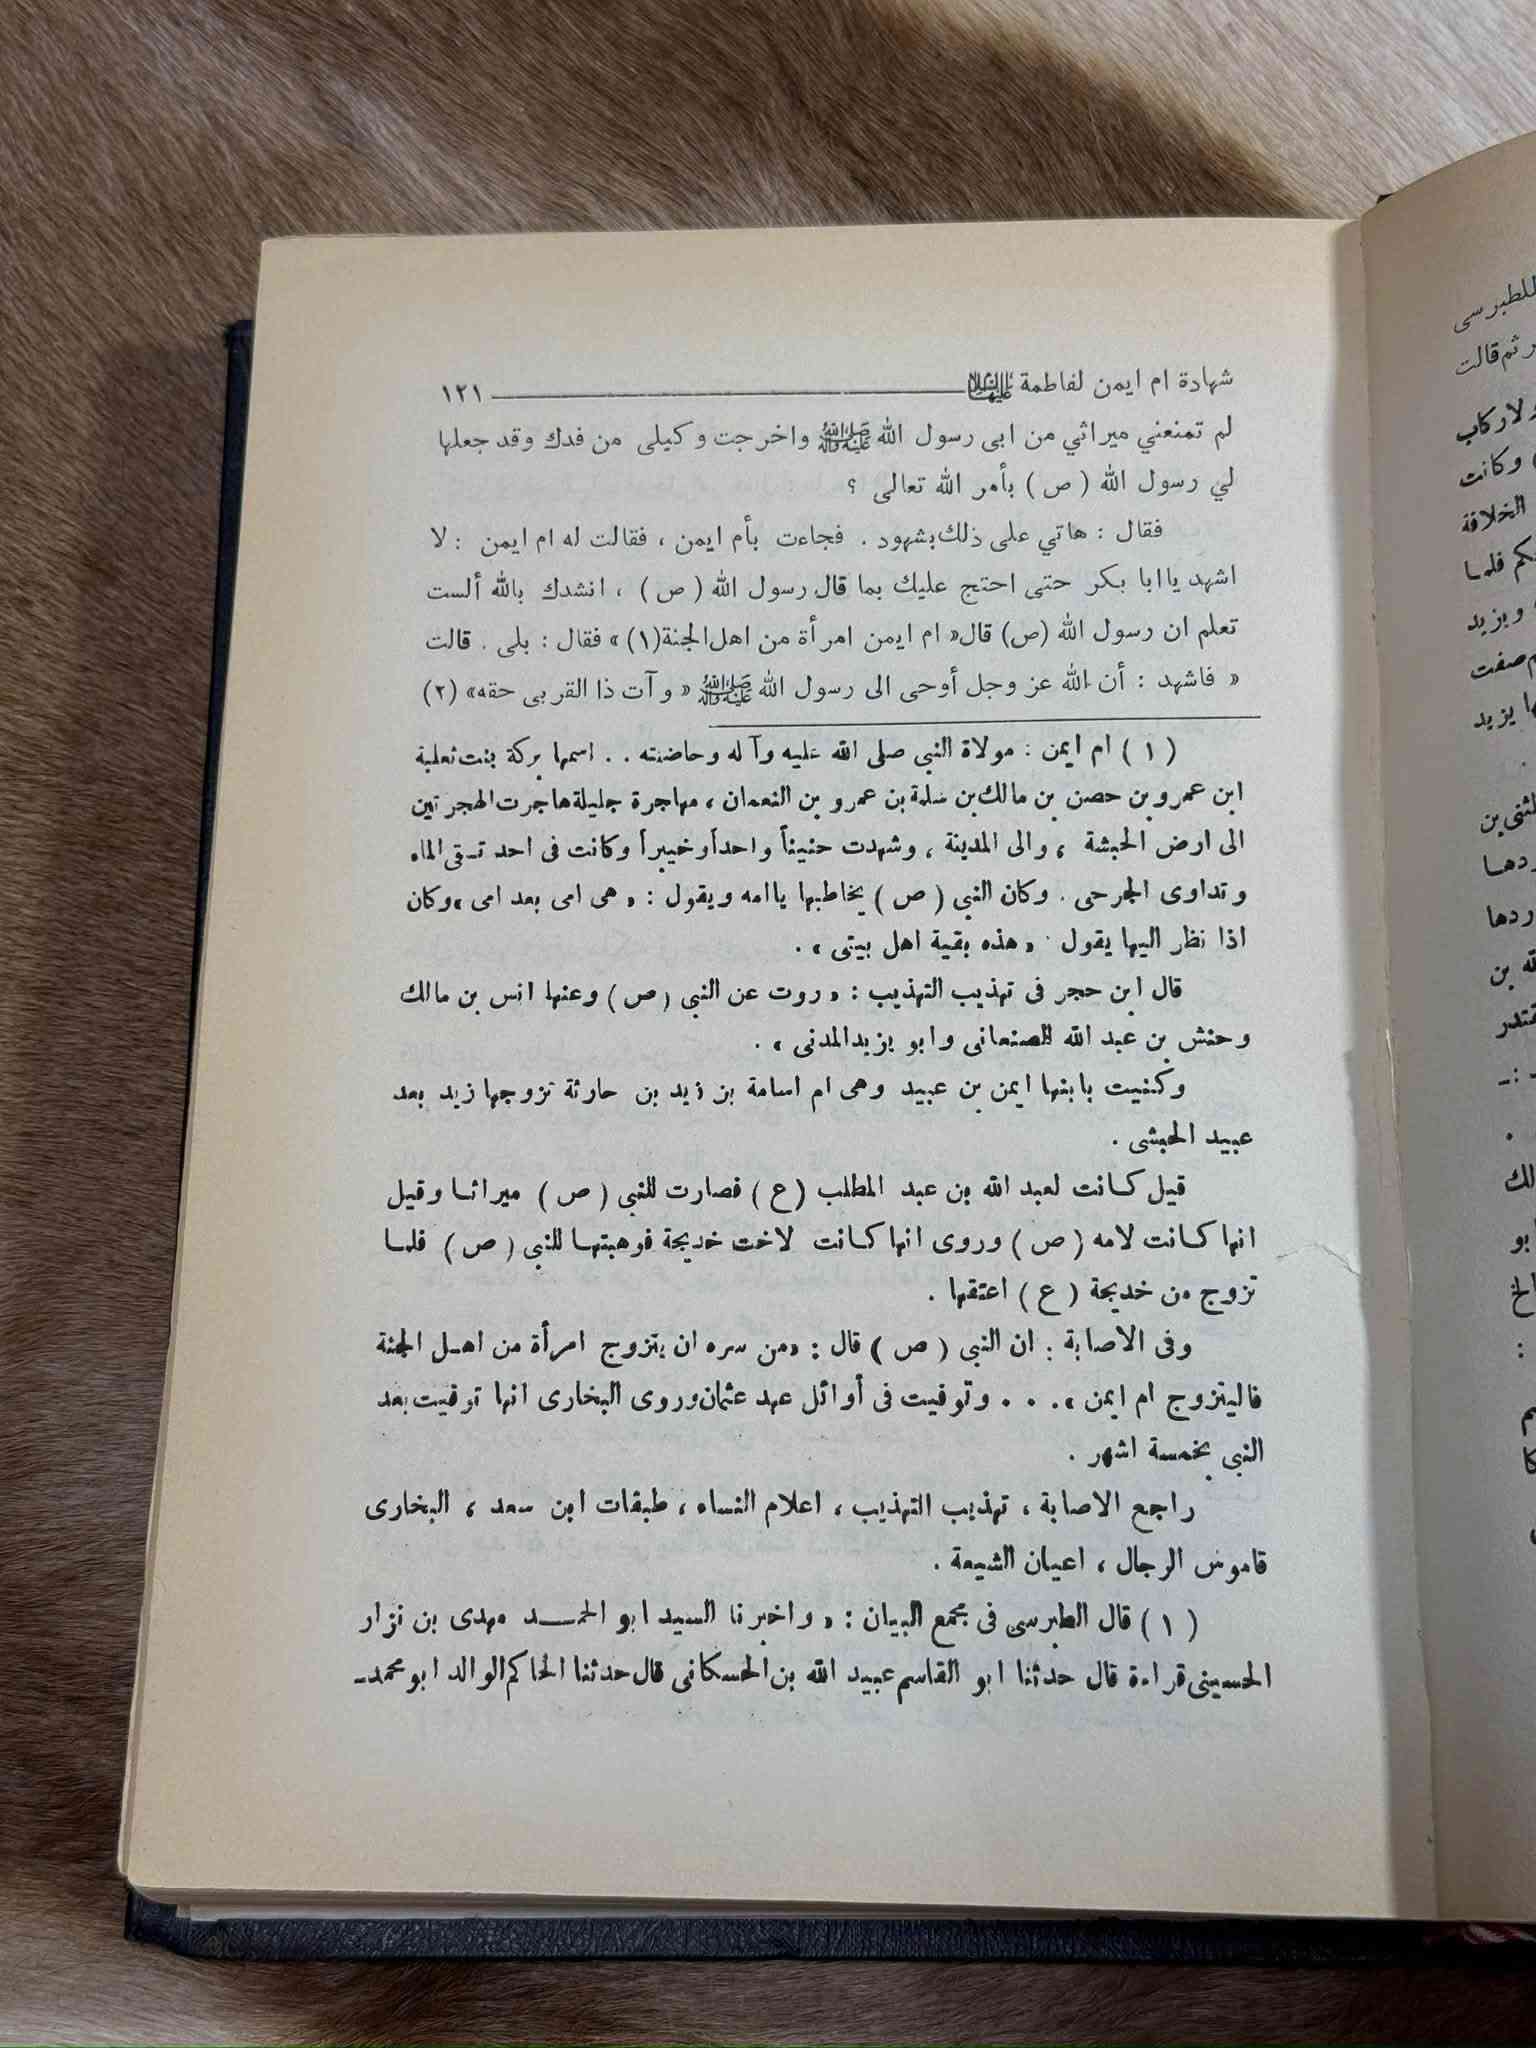 شهادة ام ايمن لفاطمة عليها السلام ١٢١
لم تمنعني ميراثي من ابى رسول الله ﷺ واخرجت وكيلى من فدك وقد جعلها
لي رسول الله ( ص ) بأمر الله تعالى ؟
فقال : هاتي على ذلك بشهود . فجاءت بأم ايمن ، فقالت له ام ايمن : لا
اشهد يا ابا بكر حتى احتج عليك بما قال رسول الله ( ص ) ، انشدك بالله ألست
تعلم ان رسول الله (ص) قال « ام ايمن امرأة من اهل الجنة(١) » فقال : بلى . قالت
« فاشهد : أن الله عز وجل أوحى الى رسول الله ﷺ « وآت ذا القربى حقه» (٢)
( ١ ) ام ايمن : مولاة النبى صلى الله عليه وآله وحاضنته . . اسمها بركة بنت ثعلبة
ابن عمرو بن حصن بن مالك بن سلمة بن عمرو بن النعمان ، مهاجرة جليلة هاجرت الهجرتين
الى ارض الحبشة ، والى المدينة ، وشهدت حنيناً واحداً وخيبراً وكانت فى احد تسقى الماء
وتداوى الجرحى . وكان النبى ( ص ) يخاطبها ياامه ويقول : « هى امى بعد امى » وكان
اذا نظر اليها يقول : « هذه بقية اهل بيتى » .
قال ابن حجر فى تهذيب التهذيب : « روت عن النبى ( ص ) وعنها انس بن مالك
وحنش بن عبد الله الصنعانى وابو يزيد المدنى » .
وكنيت بابنها ايمن بن عبيد وهى ام اسامة بن زيد بن حارثة تزوجها زيد بعد
عبيد الحبشى .
قيل كانت لعبد الله بن عبد المطلب ( ع ) فصارت للنبى ( ص ) ميراثا وقيل
انها كانت لامه ( ص ) وروى انها كانت لاخت خديجة فوهبتها للنبى ( ص ) فلما
تزوج من خديجة ( ع ) اعتقها .
وفى الاصابة : ان النبى ( ص ) قال : « من سره ان يتزوج امرأة من اهل الجنة
فاليتزوج ام ايمن » . . . وتوفيت فى أوائل عهد عثمان وروى البخارى انها توفيت بعد
النبى بخمسة اشهر .
راجع الاصابة ، تهذيب التهذيب ، اعلام النساء ، طبقات ابن سعد ، البخارى
قاموس الرجال ، اعيان الشيعة .
( ١ ) قال الطبرسى فى مجمع البيان : « واخبرنا السيد ابو الحمد مهدى بن نزار
الحسينى قراءة قال حدثنا ابو القاسم عبيد الله بن الحسكانى قال حدثنا الحاكم الوالد ابو محمد ـ
للطبرسى
ثم قالت
ولا ركاب
وكانت
الخلافة
فلما
ويزيد
يزيد
ردها
ردها
بن